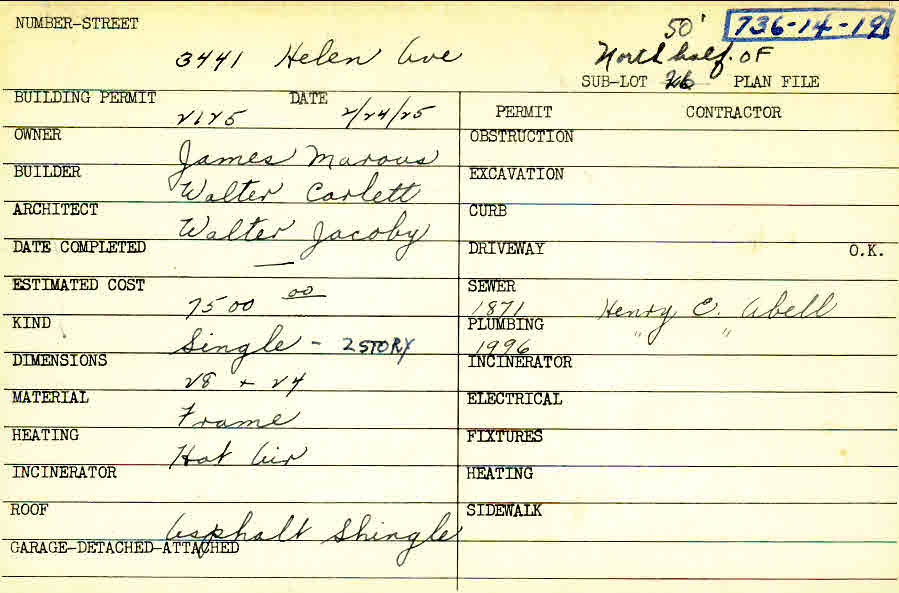 NUMBER-STREET 50' 736-14-19
3441 Helen Ave North half OF
SUB-LOT PLAN FILE
BUILDING PERMIT DATE PERMIT CONTRACTOR
2125 2/24/25
OWNER James Marous OBSTRUCTION
BUILDER Walter Carlett EXCAVATION
ARCHITECT Walter Jacoby CURB
DATE COMPLETED — DRIVEWAY O.K.
ESTIMATED COST 7500 00 SEWER 1871 Henry C. Abell
KIND Single - 2 STORY PLUMBING 1996 " "
DIMENSIONS 28 + 24 INCINERATOR
MATERIAL Frame ELECTRICAL
HEATING Hot Air FIXTURES
INCINERATOR HEATING
ROOF Asphalt Shingle SIDEWALK
GARAGE-DETACHED-ATTACHED